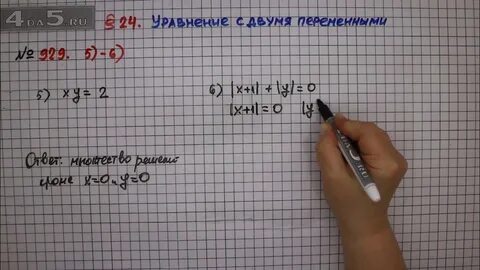 4DA5.RU
§ 24. Уравнение с двумя переменными
№ 929. 5)-6)
5) xy = 2
6) |x+1| + |y| = 0
|x+1| = 0 |y
Ответ: множество решений
кроме x=0 и y=0